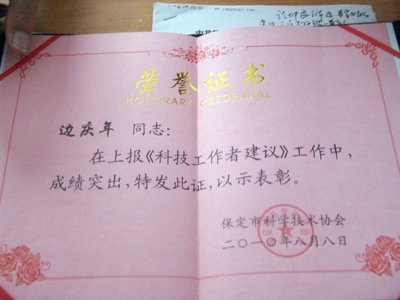 荣誉证书
HONORARY CREDENTIAL
边庆年 同志:
在上报《科技工作者建议》工作中,
成绩突出,特发此证,以示表彰。
保定市科学技术协会
二〇一〇年八月八日